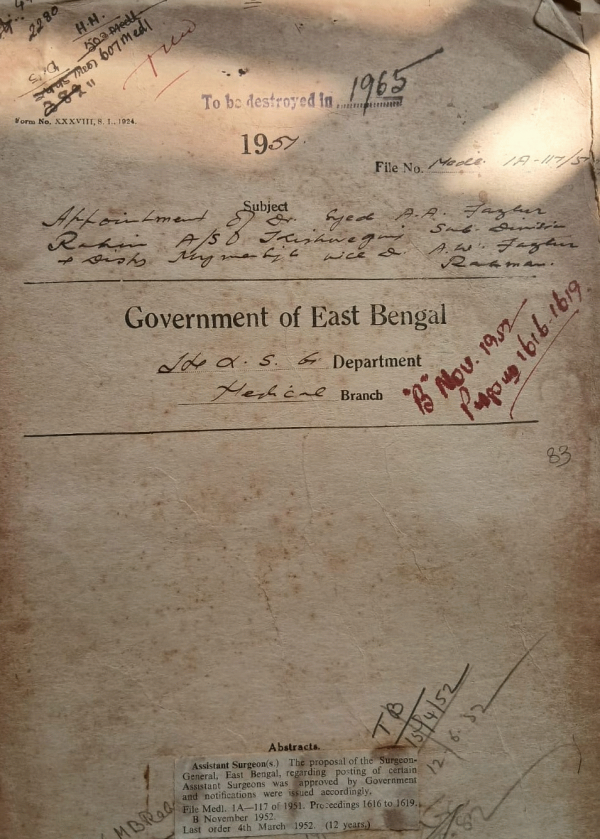 2280
H.H.
607 Medl
To be destroyed in 1965
Form No. XXXVIII, S. I., 1924.
1951.
File No. Medl. 1A-117/51
Subject
Appointment of Dr. Syed A.A. Fazlur
Rahim A/S Sub. Division
vice Dr. A.W. Fazlur
Rahman.
Government of East Bengal
Department
Medical Branch
"B" Nov. 1952
1616-1619.
83
TB
15/4/52
12.6.52
Abstracts.
Assistant Surgeon(s.) The proposal of the Surgeon-
General, East Bengal, regarding posting of certain
Assistant Surgeons was approved by Government
and notifications were issued accordingly.
File Medl. 1A—117 of 1951. Proceedings 1616 to 1619,
B November 1952.
Last order 4th March 1952. (12 years.)